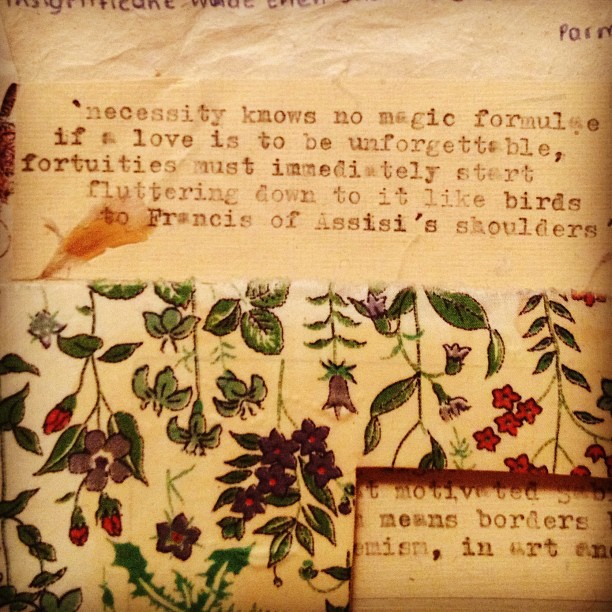 insignificant
Parm
'necessity knows no magic formulae
if a love is to be unforgettable,
fortuities must immediately start
fluttering down to it like birds
to Francis of Assisi's shoulders'
t motivated
means borders
emism, in art and